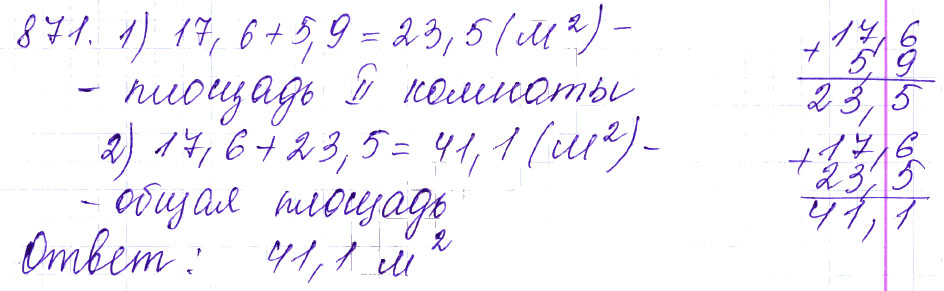 871. 1) 17,6 + 5,9 = 23,5 (м²) –
– площадь II комнаты
2) 17,6 + 23,5 = 41,1 (м²) –
– общая площадь
Ответ: 41,1 м²
17,6
+ 5,9
23,5
17,6
+ 23,5
41,1